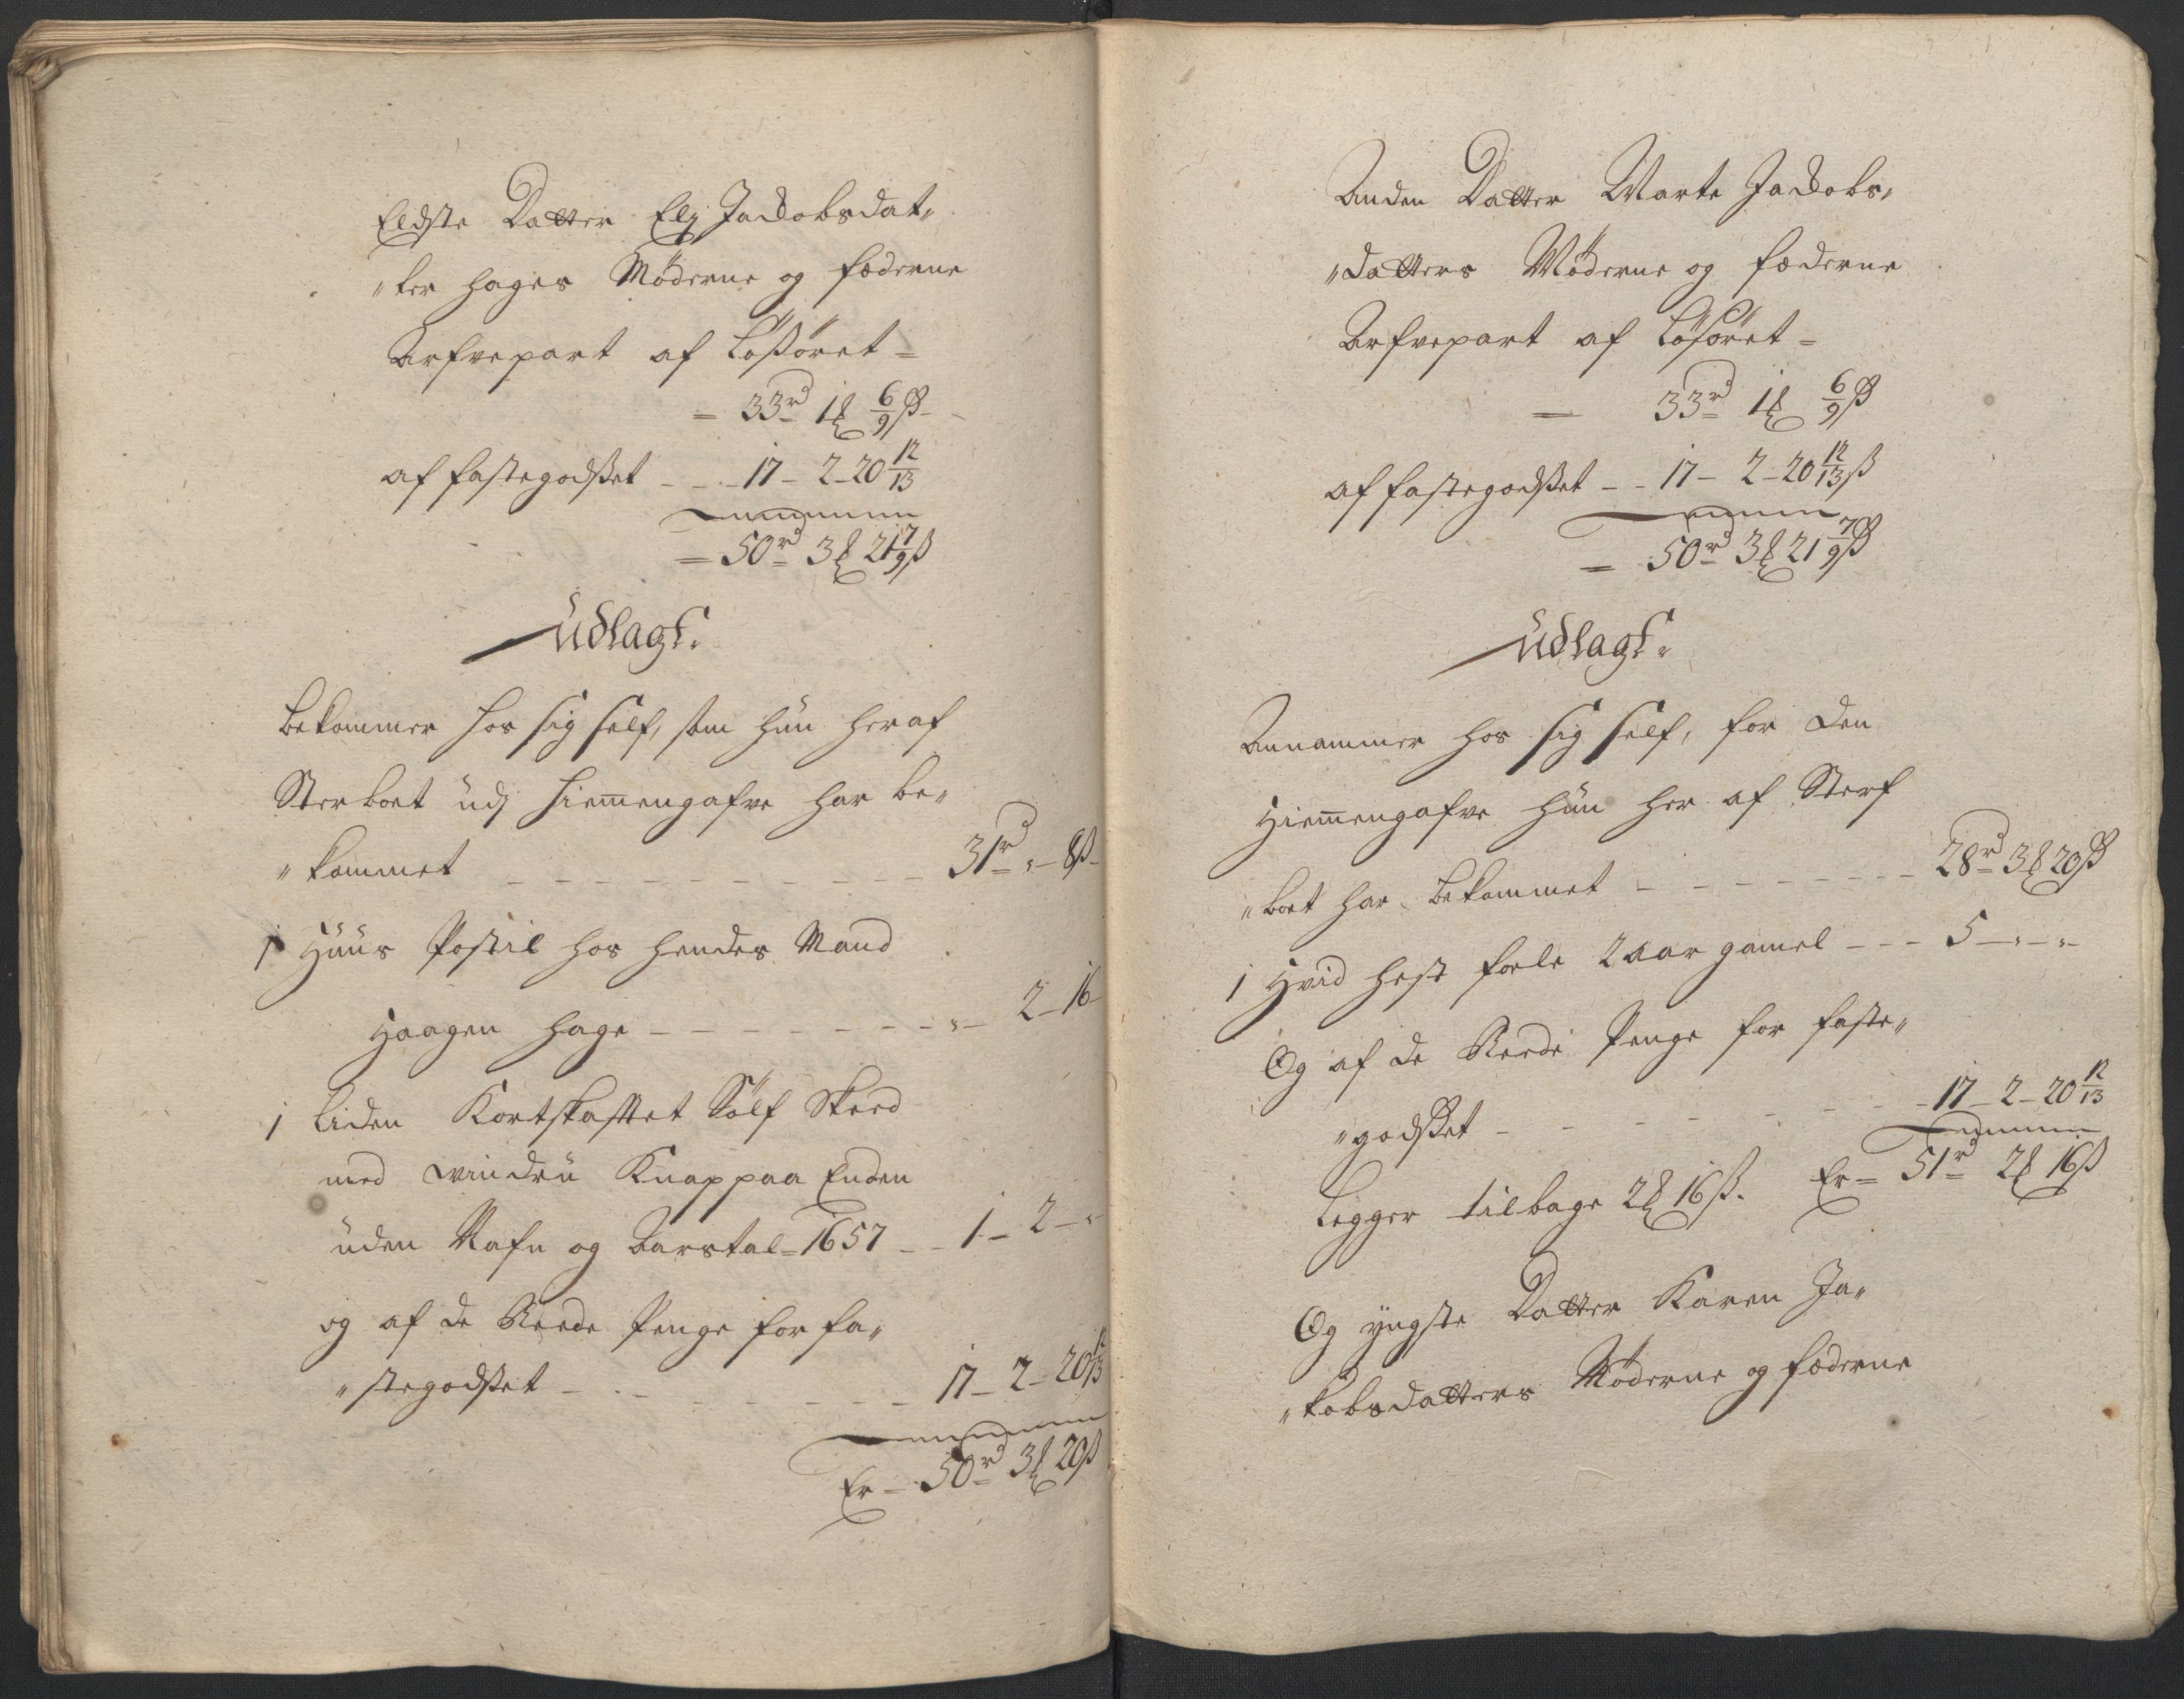 Eldste Datter Elj Jackobsdat„
„ter Hages Möderne og fæderne
Arfvepart af Lößöret =
= 33rd 1 6/9ß
af faste godßet - - - 17 - 2 - 20 12/13
= 50rd 3 21 7/9ß
Udlagt.
Bekommer hos sig self, som hun her af
Sterboet udj Hiemmengafve har be„
„kommet - - - - - - - - 31rd „ - 8ß
1 Huus Postil hos hendes Mand
Haagen Hage - - - - - - - „ - 2 - 16
1 Liden Kortskafftet Sölf Skeed
med windru Knap paa Enden
uden Nafn og Aarstal = 1657 - - 1 - 2 - „
og af de Reede Penge for fa„
„stegodßet - - - - - - - 17 - 2 - 20 12/13
Er = 50rd 3 20ß
Anden Datter Marte Jackobs„
„datters Möderne og fæderne
Arfvepart af Lösöret =
= 33rd 1 6/9ß
af fastegodßet - - 17 - 2 - 20 12/13ß
= 50rd 3 21 7/9ß
Udlagt.
Annammer hos sig self, for den
Hiemmengafve hun her af Sterf
„boet har bekommet - - - - - - - 28rd 3 20ß
1 Hvid hest fole 2 aar gamel - - - 5 - „ - „
Og af de Reede Penge for faste„
„godßet - - - - - - - 17 - 2 - 20 12/13
Legger tilbage 2 16ß. Er = 51rd 2 16ß
Og yngste Datter Karen Ja„
„kobsdatters Möderne og fæderne